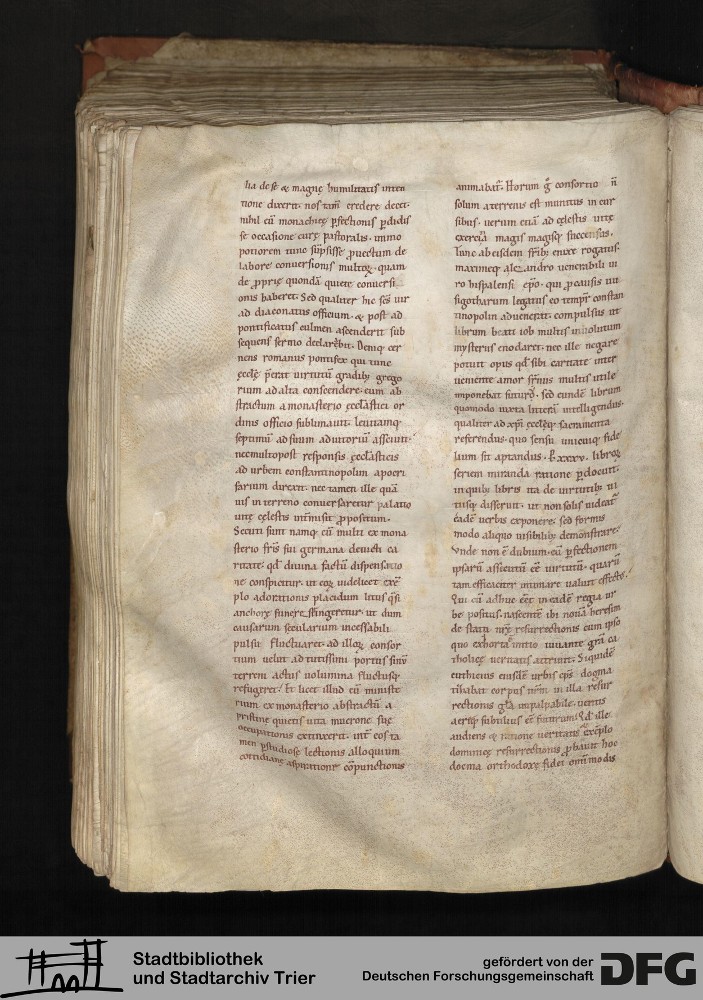 lia de se & magnę humilitatis inten
tione dixerit. nos tam̄ credere decet.
nihil eū monachicę ꝑfectionis ꝑdidis
se occasione curę pastoralis. immo
potiorem tunc sūpsisse ꝓuectum de
labore conuersionis multoꝝ. quam
de ꝓprię quondā quiete conuersi
onis haberet. Sed qualiter hic scs̄ uir
ad diaconatus officium. & post ad
pontificatus culmen ascenderit sub
sequens sermo declarabit. Deniq; cer
nens romanus pontifex qui tunc
ęcclę p̄erat uirtutū gradib; grego
rium ad alta conscendere. eum ab
stractum a monasterio ęcclastici or
dinis officio sublimauit. leuitamq;
septimū ad suum adiutoriū assciuit.
nec multo post responsis ęcclasticis
ad urbem constantinopolim apocri
sarium direxit. nec tamen ille quā
uis in terreno conuersaretur palatio
uitę cęlestis intmisit ꝓpositum.
Secuti sunt namq; eū multi ex mona
sterio fr̄s sui germana deuicti ca
ritate. qd̄ diuina factū dispensatio
ne conspicitur. ut eoꝝ uidelicet exē
plo adorationis placidum litus q̄si
anchorę funere st̄ringeretur. ut dum
causarum secularium incessabili
pulsu fluctuaret. ad illoꝝ consor
tium uelut ad tutissimi portus sinū
terreni actus uolumina fluctusq;
refugeret. Et licet illud eū ministe
rium ex monasterio abstractū a
pristinę quietis uita mucrone suę
occupationis extinxerit. int̄ eos ta
men ꝑ studiosę lectionis alloquium
cottidianę aspiratione cōpunctionis
animabat̄. Horum g̊ consortio n̄
solum a terrenis est munitus in cur
sibus. uerum etiā ad cęlestis uitę
exercitia magis magisq; succensus.
Tunc ab eisdem fr̄ib; enixe rogatus.
maximeq; alexandro uenerabili ui
ro hispalensi ep̄o. qui ꝓ causis uui
sigotharum legatus eo tempr̄ constan
tinopolin aduenerat. compulsus ut
librum beati iob multis inuolutum
mysteriis enodaret. nec ille negare
potuit opus qd̄ sibi caritate inter
ueniente amor fr̄nus multis utile
imponebat futurū. sed eundē librum
quomodo iuxta litterā intelligendus.
qualiter ad xp̄i ęcclęq; sacramenta
referendus. quo sensu unicuiq; fide
lium sit aptandus. ꝑ xxxv. libroꝝ
seriem miranda ratione ꝑdocuit.
in quib; libris ita de uirtutib; ui
tiisq; disseruit. ut non solū uideat̄
eadē uerbis exponere. sed formis
modo aliquo uisibilib; demonstrare.
Vnde non ē dubium. eū ꝑfectionem
ipsarū assecutū eē uirtutū. quarū
tam efficaciter intimare ualuit effectꝰ.
Qui cū adhuc eēt in eadē regia ur
be positus. nascentē ibi nouā heresim
de statu nr̄ę resurrectionis cum ipso
quo exhorta initio iuuante gr̄a ca
tholicę ueritatis attriuit. Siquidē
euthicius eiusdē urbis ep̄s dogma
tizabat corpus nr̄m in illa resur
rectionis gl̄a impalpabile. uentis
aereq; subtilius eē futurum. Qd̄ ille
audiens & ratione ueritatis & exēplo
dominicę resurrectionis ꝓbauit hoc
docma orthodoxę fidei omnimodis
Stadtbibliothek
und Stadtarchiv Trier
gefördert von der
Deutschen Forschungsgemeinschaft
DFG